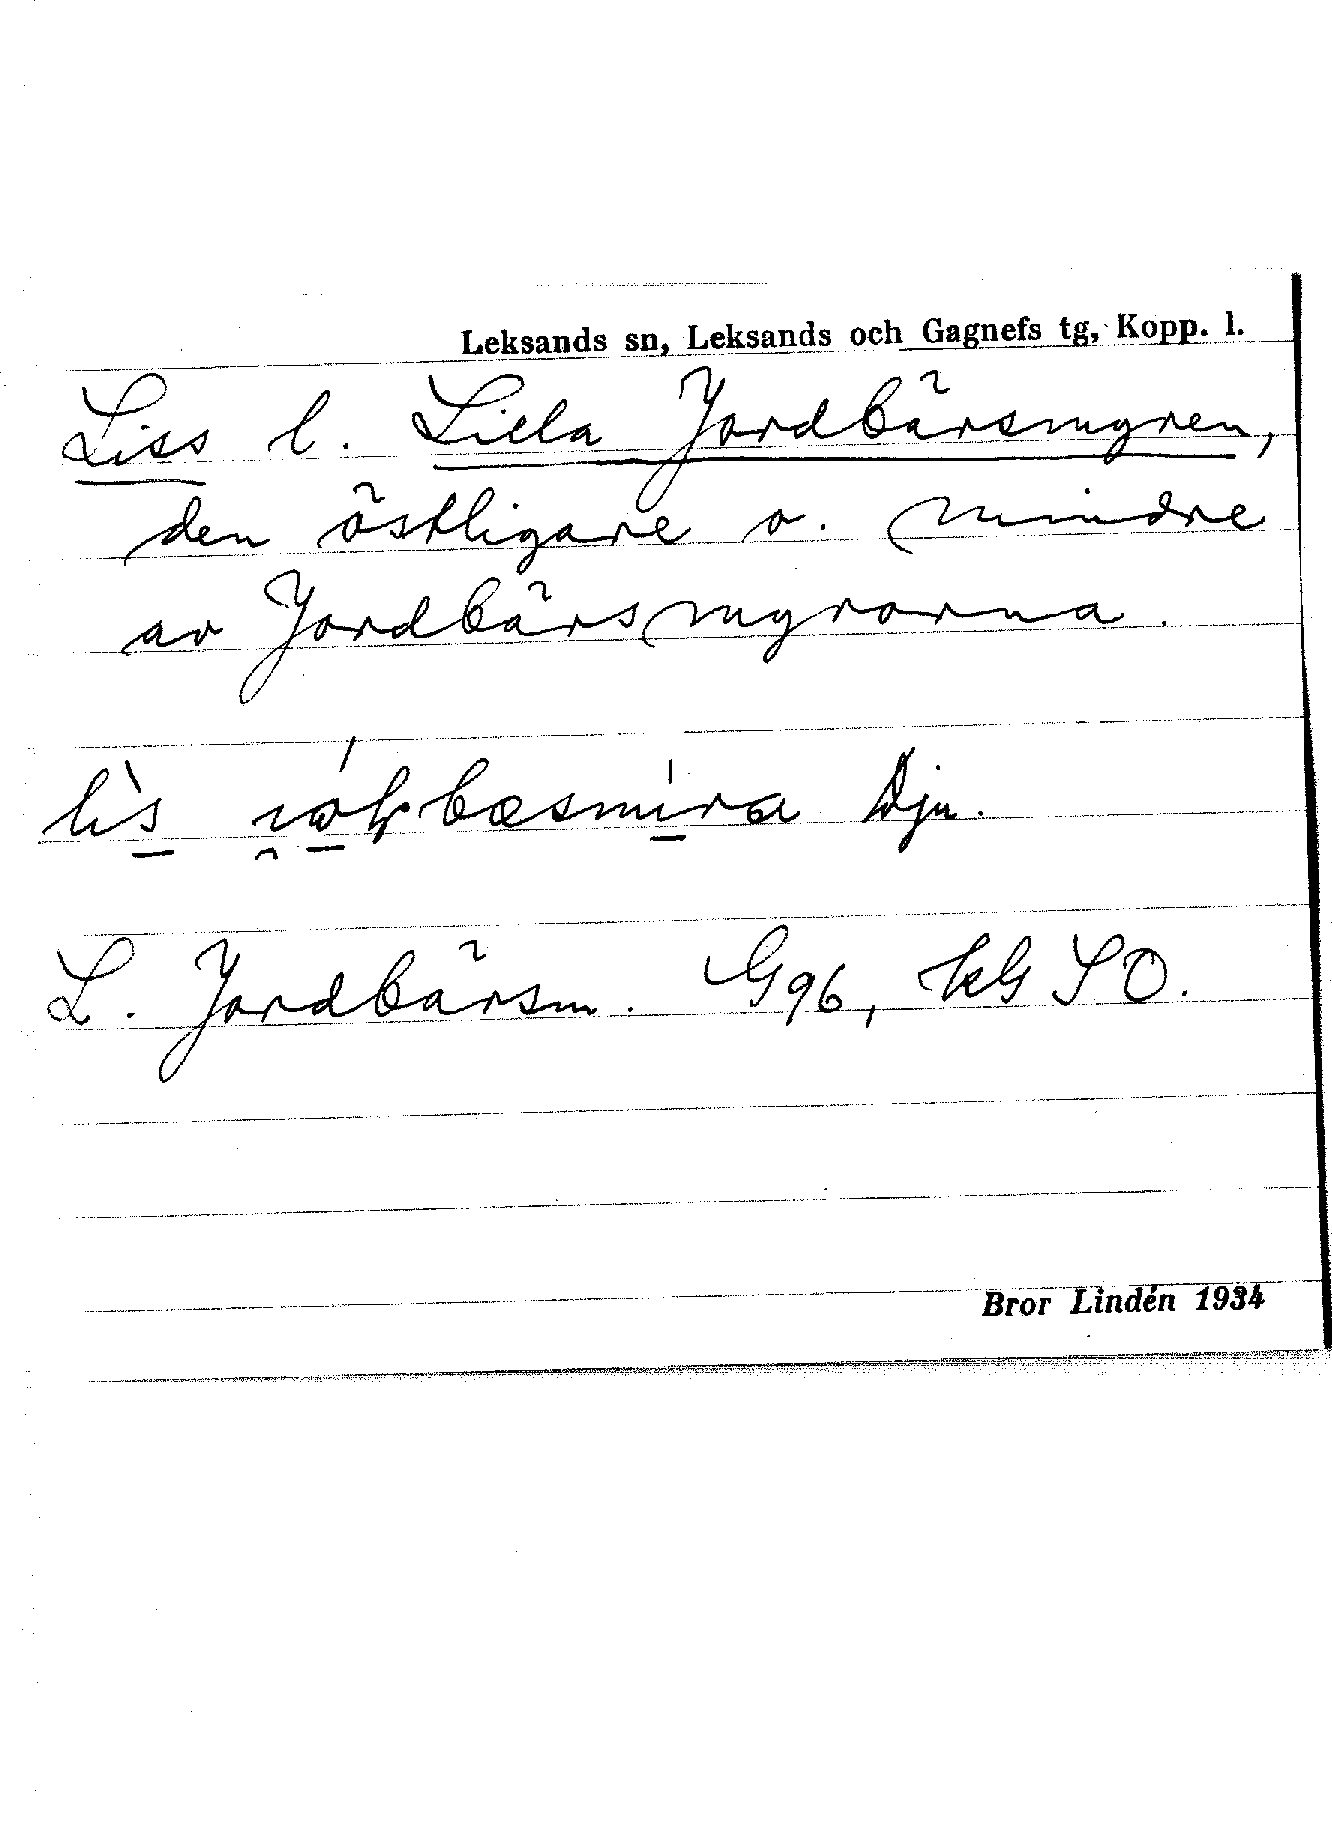 Leksands sn, Leksands och Gagnefs tg, Kopp. l.
Liss l. Lilla Jordbärsmyren,
den östligare o. mindre
av Jordbärsmyrorna.
Dju.
L. Jordbärsm. G96, kG SO.
Bror Lindén 1934